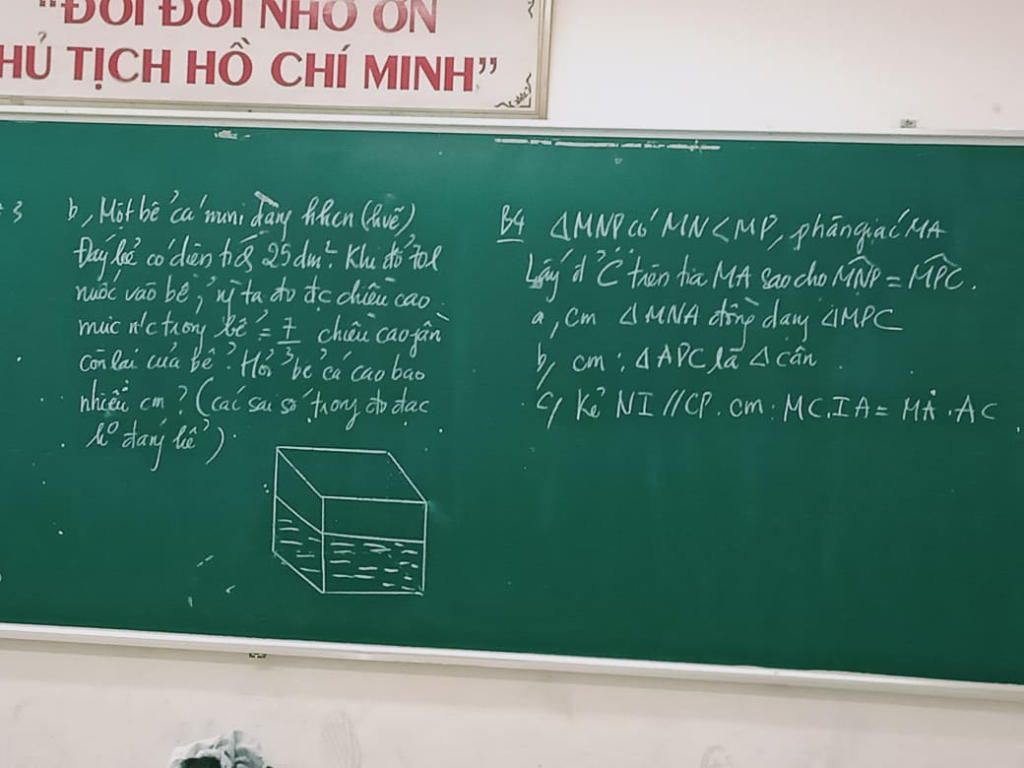 "ĐỜI ĐỜI NHỚ ƠN
HỦ TỊCH HỒ CHÍ MINH"
3
b, Một bể cá mini dạng hhcn (hvẽ)
Đáy bể có diện tích 25 dm². Khi đổ 70l
nước vào bể, ng ta đo đc chiều cao
mức nc trong bể = 7/3 chiều cao phần
còn lại của bể. Hỏi bể cá cao bao
nhiêu cm? (các sai số trong đo đạc
ko đáng kể).
B4 ΔMNP có MN < MP, phân giác MA
Lấy đ' C trên tia MA sao cho MNP = MPC.
a, cm ΔMNA đồng dạng ΔMPC
b, cm: ΔAPC là Δ cân
c/ Kẻ NI // CP. cm: MC.IA = MA.AC